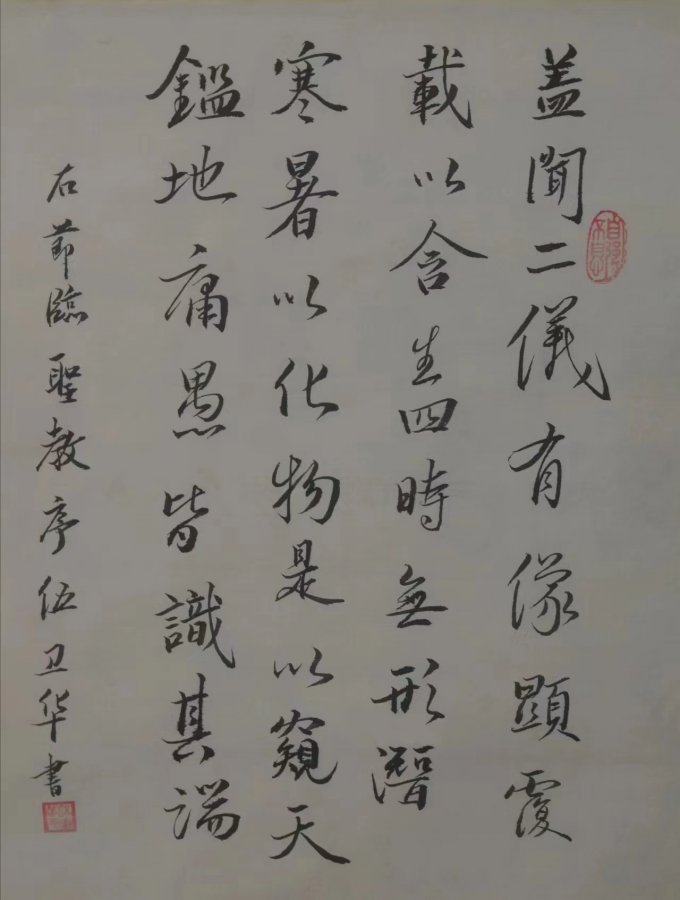 盖聞二儀有像顯覆
載以含生四時無形潛
寒暑以化物是以窺天
鑑地庸愚皆識其端
右節臨聖教序伍卫华書